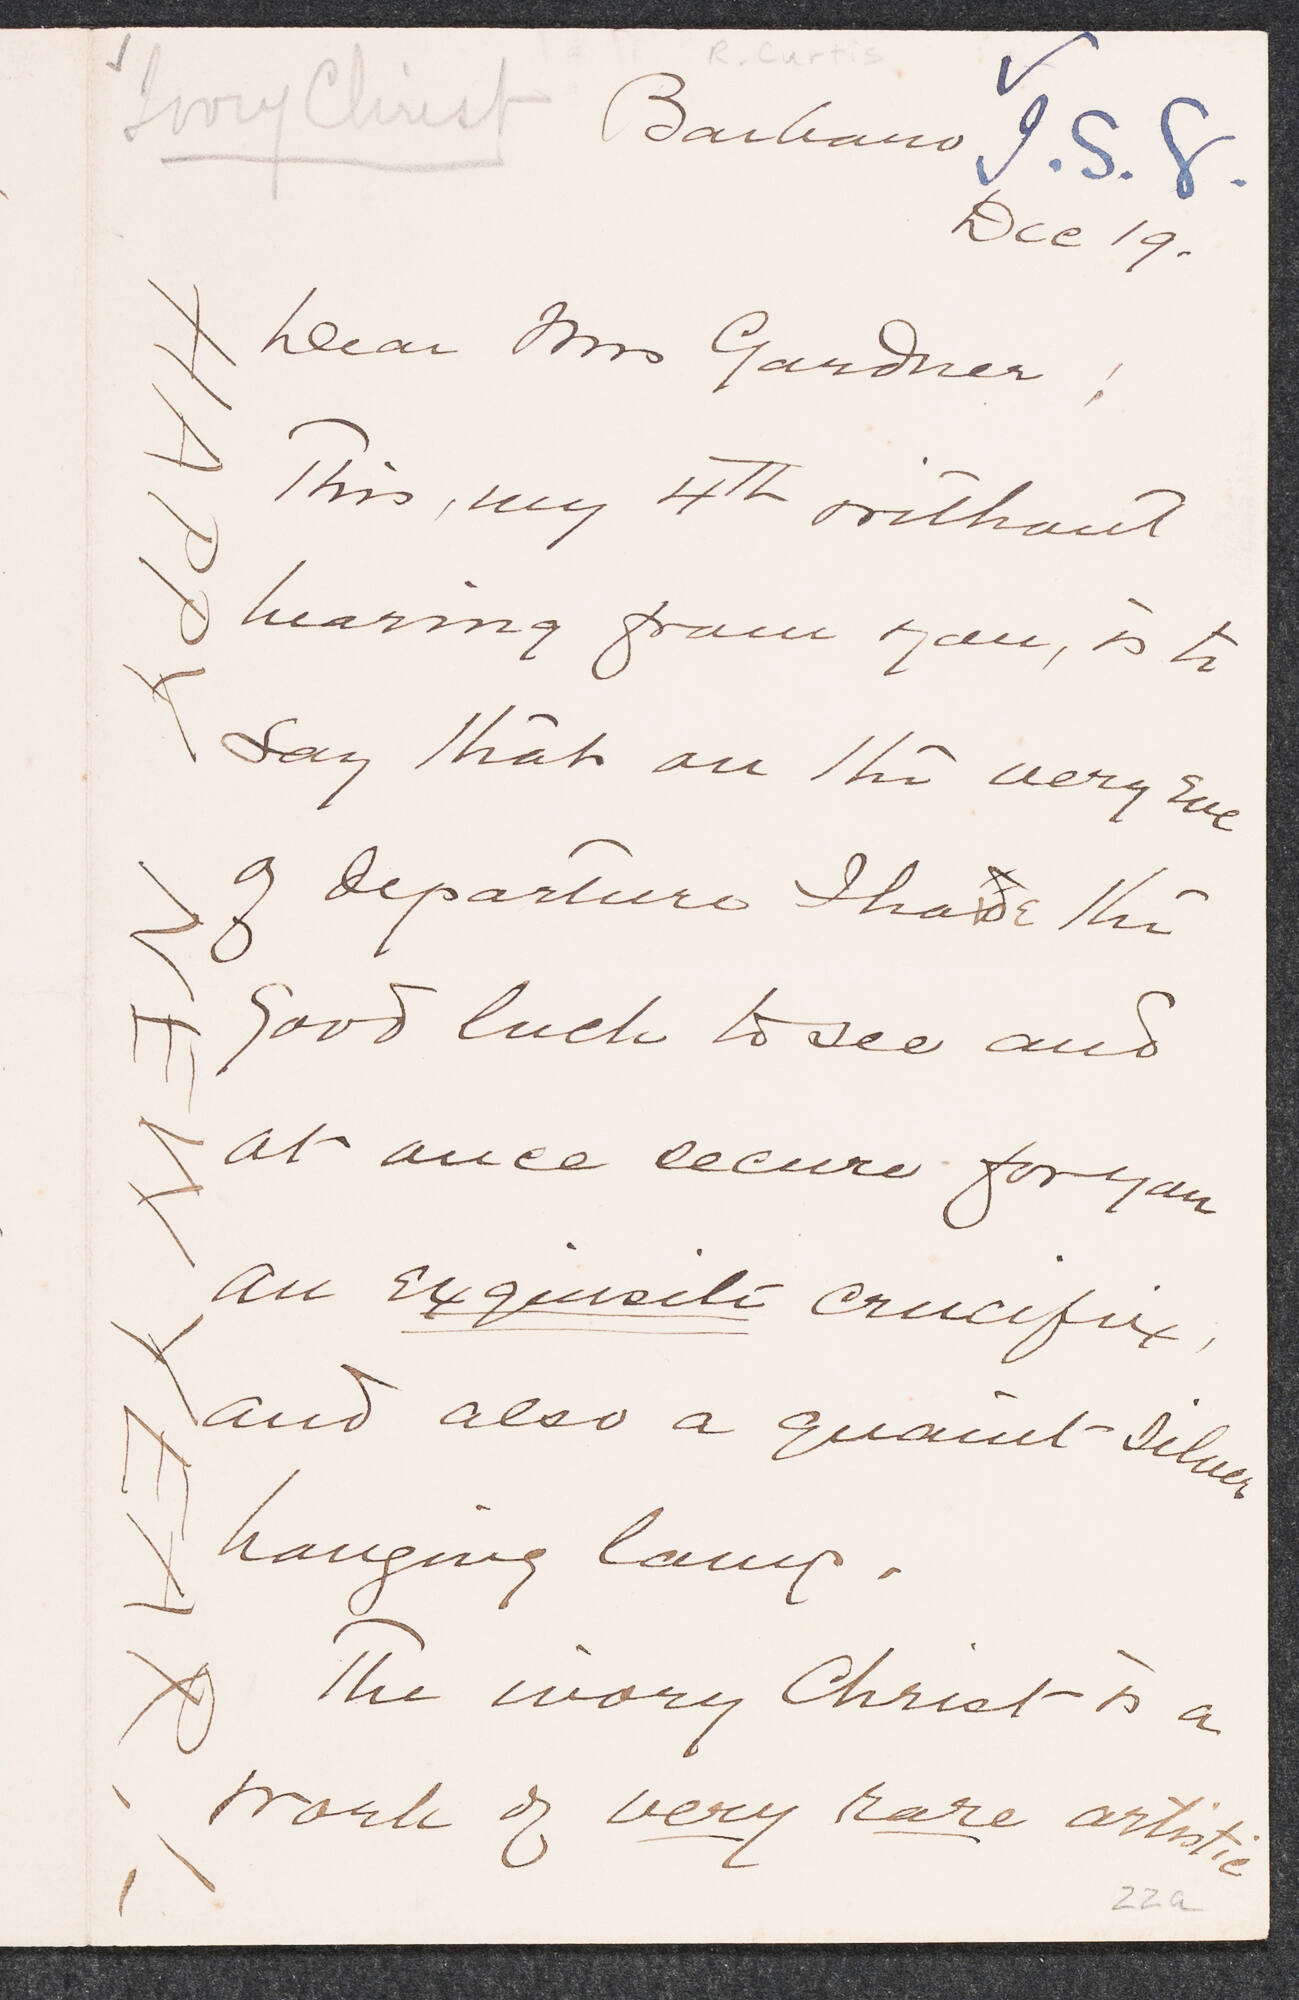 Ivory Christ
R. Curtis
Barbaro
I.S.G.
Dec 19.
Dear Mrs Gardner!
This, my 4th without
hearing from you, is to
say that on the very eve
of departure I had the
good luck to see and
at once secure for you
an exquisite crucifix,
and also a quaint silver
hanging lamp.
The ivory Christ is a
work of very rare artistic
HAPPY NEW YEAR!
22a